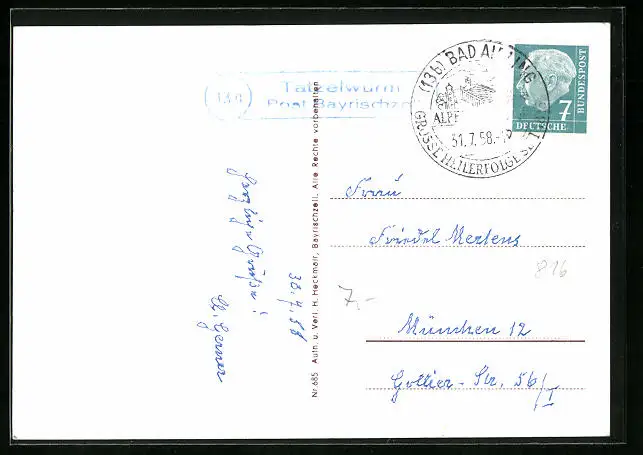 (13b)
Tatzelwurm
Post Bayrischzell
(13b) BAD AIBLING
31.7.58.-
GROSSE HEILERFOLGE SEIT
7
DEUTSCHE
BUNDESPOST
Herzliche Grüße!
30.7.58
Nr 685 Aufn. u. Verl. H. Heckmair, Bayrischzell. Alle Rechte vorbehalten
Frau
Friedel Mertens
816
7,-
München 12
Gollier-Str. 56/I